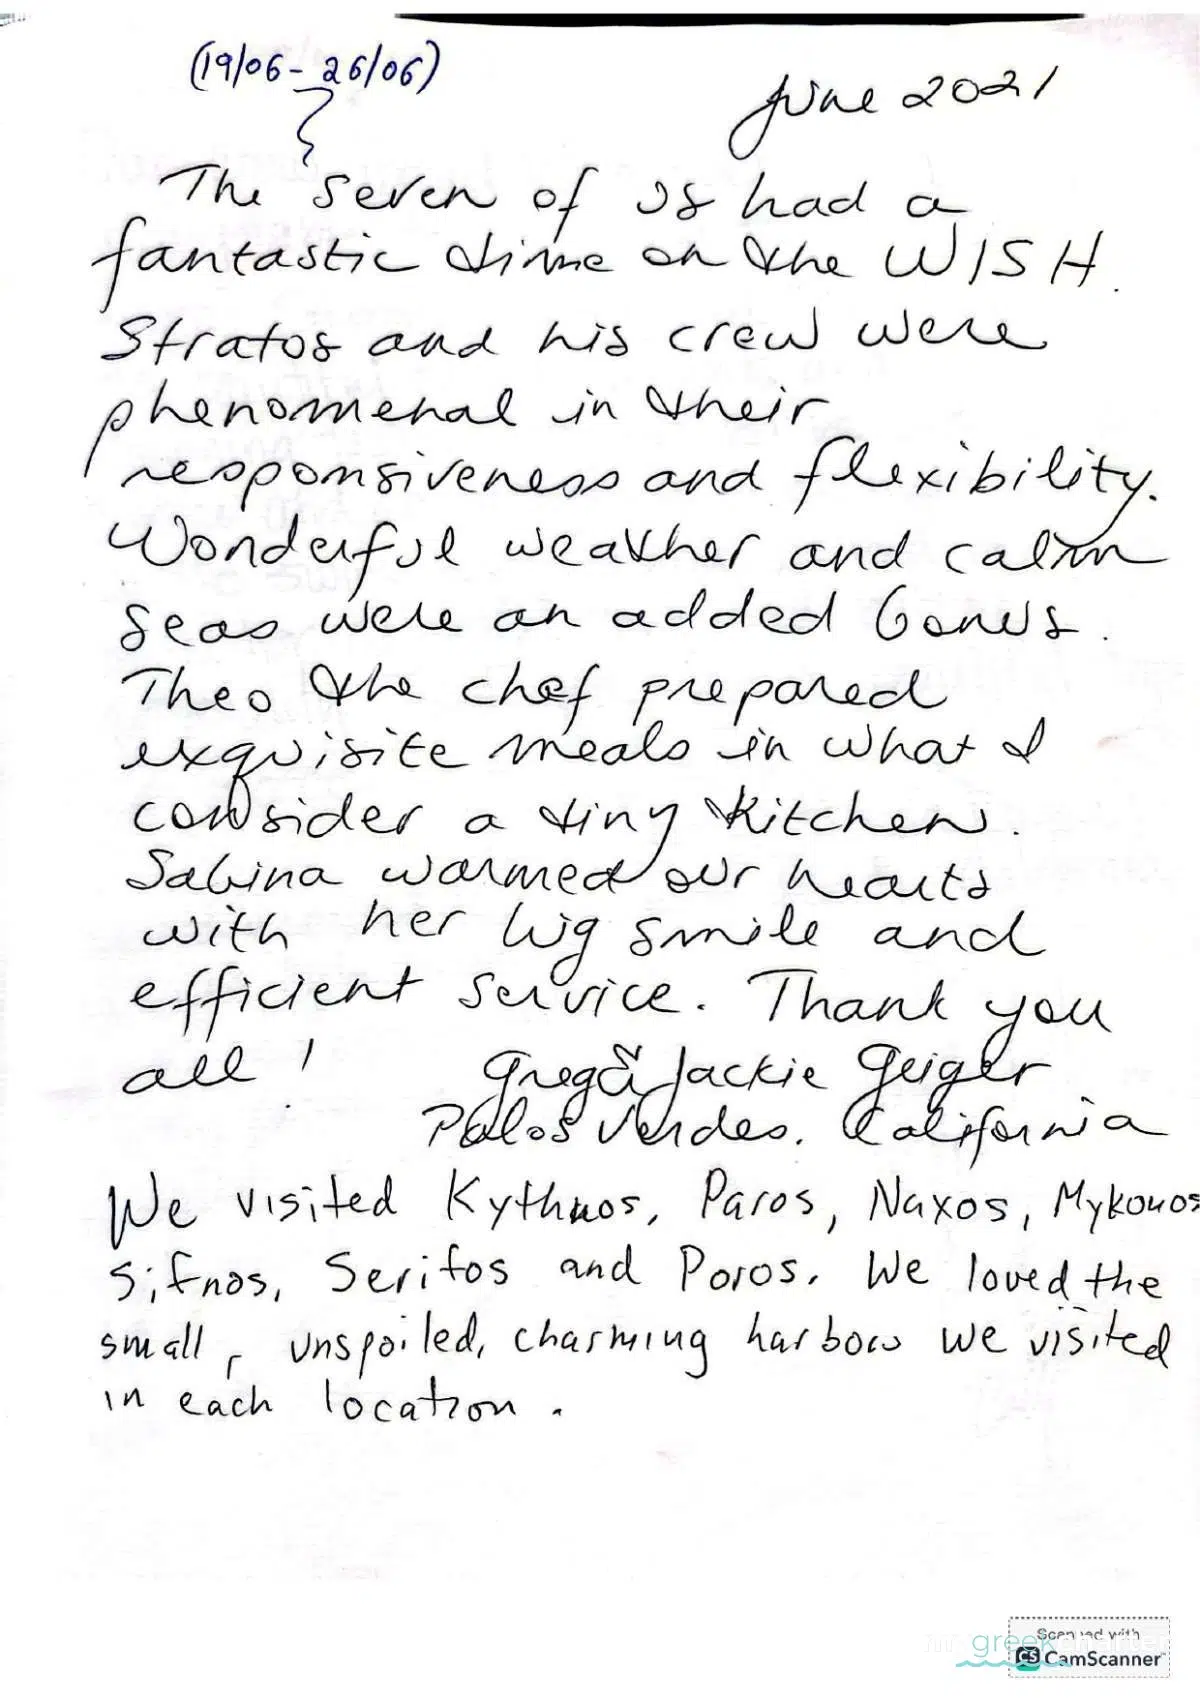 (19/06 - 26/06)
June 2021
The seven of us had a
fantastic time on the WISH.
Stratos and his crew were
phenomenal in their
responsiveness and flexibility.
Wonderful weather and calm
seas were an added bonus.
Theo the chef prepared
exquisite meals in what I
consider a tiny kitchen.
Sabina warmed our hearts
with her big smile and
efficient service. Thank you
all!
Greg & Jackie Geiger
Palos Verdes. California
We visited Kythnos, Paros, Naxos, Mykonos
Sifnos, Serifos and Poros. We loved the
small, unspoiled, charming harbors we visited
in each location.
Scanned with
greekcharter
CS CamScanner